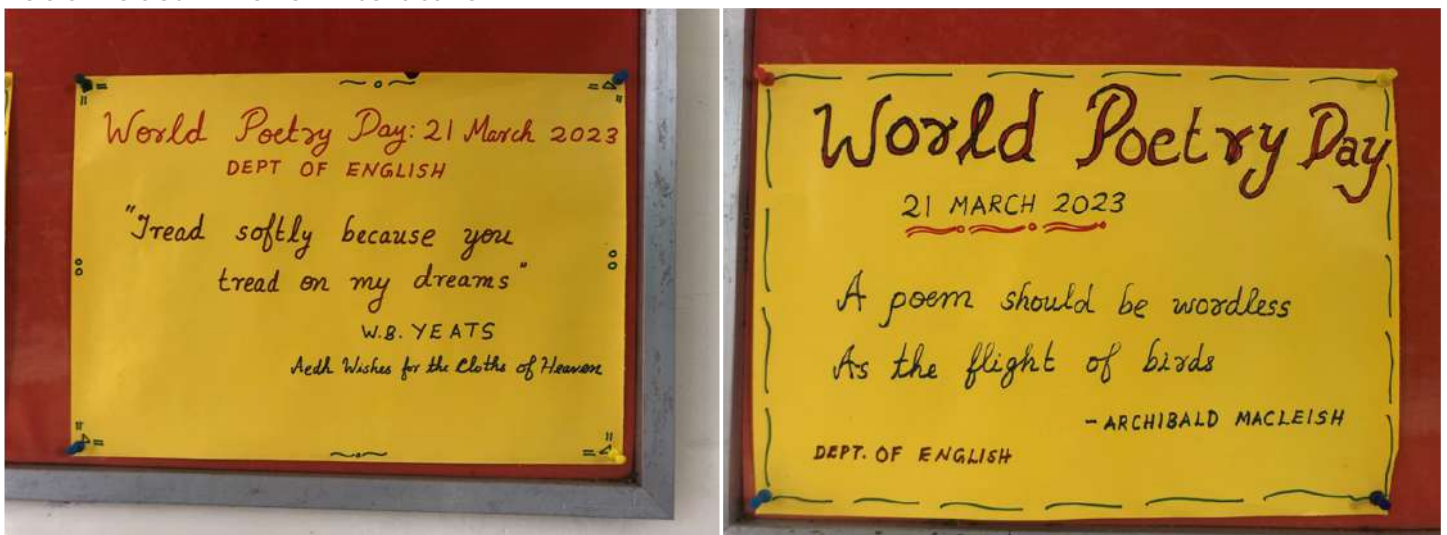 World Poetry Day: 21 March 2023
DEPT OF ENGLISH
"Tread softly because you
tread on my dreams"
W.B. YEATS
Aedh Wishes for the Cloths of Heaven
World Poetry Day
21 MARCH 2023
A poem should be wordless
As the flight of birds
- ARCHIBALD MACLEISH
DEPT. OF ENGLISH